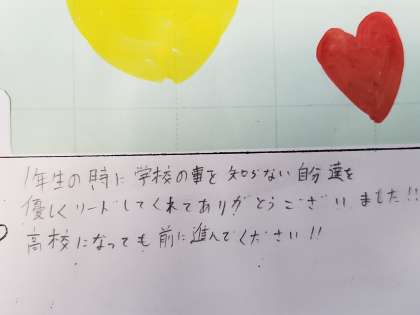 1年生の時に学校の事を知らない自分達を
優しくリードしてくれてありがとうございました!!
高校になっても前に進んでください!!